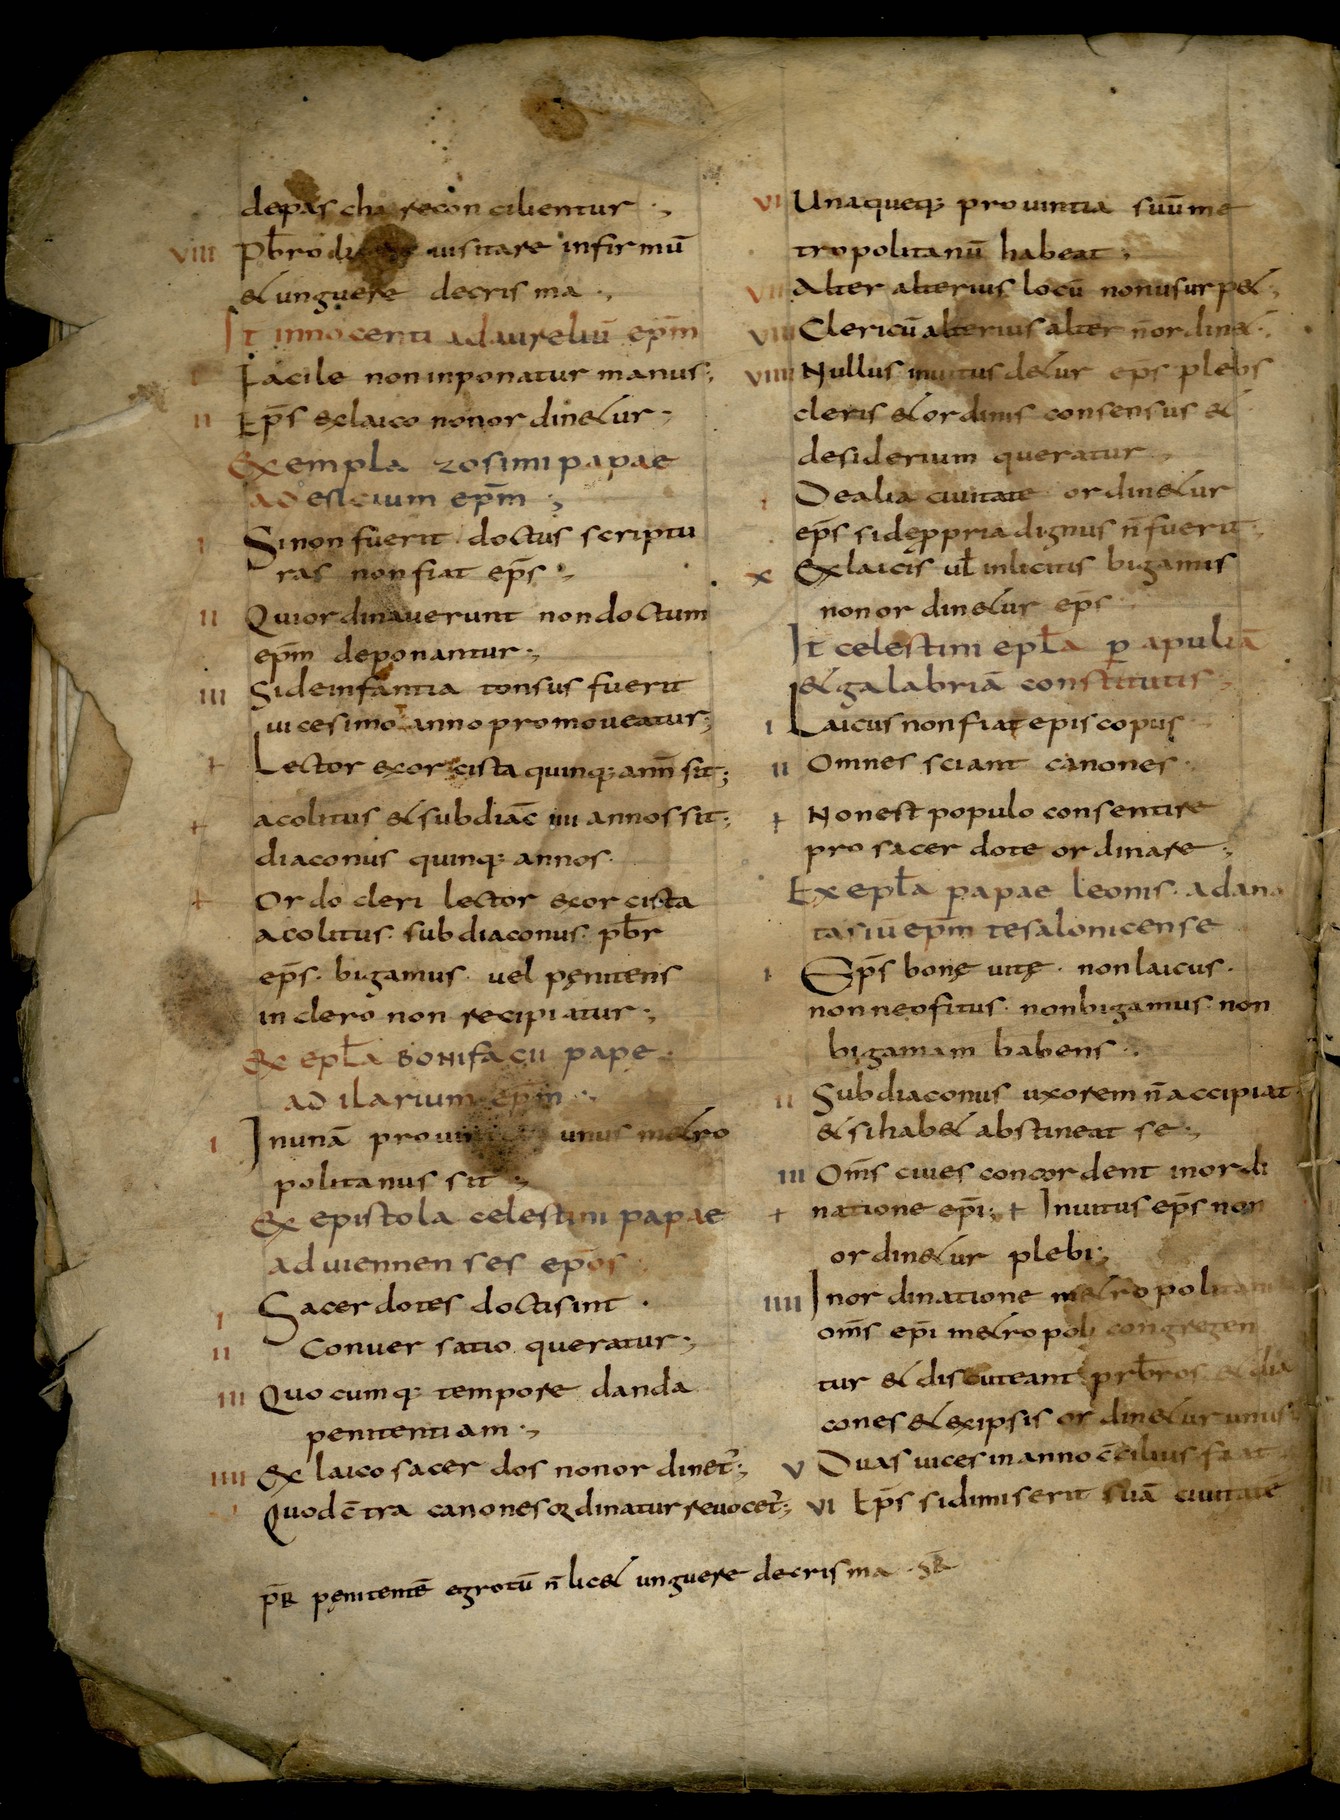 depascha reconcilientur ·,
VIII Pb̄ro visitare infirmū
& unguere decrisma ·,
It innocenti ad aureliū ep̄m
I Facile non inponatur manus;
II Ep̄s ex laico non ordin&ur ·,
Exempla zosimi papae
ad esicium ep̄m ·,
I Si non fuerit doctus scriptu
ras non fiat ep̄s ·,
II Qui ordinaverunt non doctum
ep̄m deponantur ·,
III Si deinfantia tonsus fuerit
vicesimo anno promoveatur;
+ Lector exorcista quinq; ann̄ sit;
+ acolitus & subdiac̄ IIII annos sit;
diaconus quinq; annos ·
+ Ordo cleri lector exorcista
acolitus · subdiaconus · pb̄r
ep̄s · bigamus · vel pęnitens
in clero non recipiatur ·,
Ex epl̄a BONIFACII pape ·
ad ilarium ep̄m ·,
I In unā unus m&ro
politanus sit ·,
Ex epistola celestini papae
ad viennenses epo̅s
I Sacerdotes docti sint ·
II Conversatio queratur ·,
III Quocumq; tempore danda
penitentiam ·,
IIII Ex laico sacerdos non ordinet̄ ;
Quod c̄tra canones ordinatur revocet̄ ;
VI Unaqueq; provintia suū me
tropolitanū habeat ;
VII Alter alterius locū non usurp& ;
VIII Clericū alterius alter n̄ ordin& ·
VIIII Nullus invitus d&ur ep̄s plebs
cleris & ordinis consensus &
desiderium queratur ·,
Dealia civitate ordin&ur
ep̄s si de p̱pria dignus n̄ fuerit ·,
X Ex laicis ul̄ inlicitis bigamis
non ordin&ur ep̄s
It celestini epl̄a p̱ apuliā
& galabriā constitutis ·,
I Laicus non fiat episcopus
II Omnes sciant canones ·
+ Non est populo consentire
pro sacerdote ordinare ·,
Ex epl̄a papae leonis · ad ana
tasiū ep̄m tesalonicense
I Ep̄s bonę vitę · non laicus ·
non neofitus · non bigamus · non
bigamam babens ·
II Subdiaconus uxorem n̄ accipiat
& si hab& abstineat se ·,
III Om̄s cives concordent in ordi
+ natione ep̄i ; + Invitus ep̄s non
ordin&ur plebi ·,
IIII In ordinatione m&ropolitani
om̄s ep̄i m&ropoli congregen
tur & discuteant prb̄ros & dia
cones & ex ipsis ordin&ur unus
V Duas vices in anno c̄cilius fiat
VI Ep̄s si dimiserit suā civitatē
p̄R pęnitentē egrotū n̄ lic& unguere decrisma · SR̄